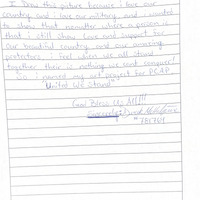 I Drew this picture because i love our
country and i love our military, and i wanted
to show that no matter where a person is
that i still show love and support for
our beautiful country and our amazing
protectors. i feel when we all stand
together their is nothing we cant conquer!
So i named my art project for PCAP
"United We Stand"
God Bless Us All!!!
Sincerely: David